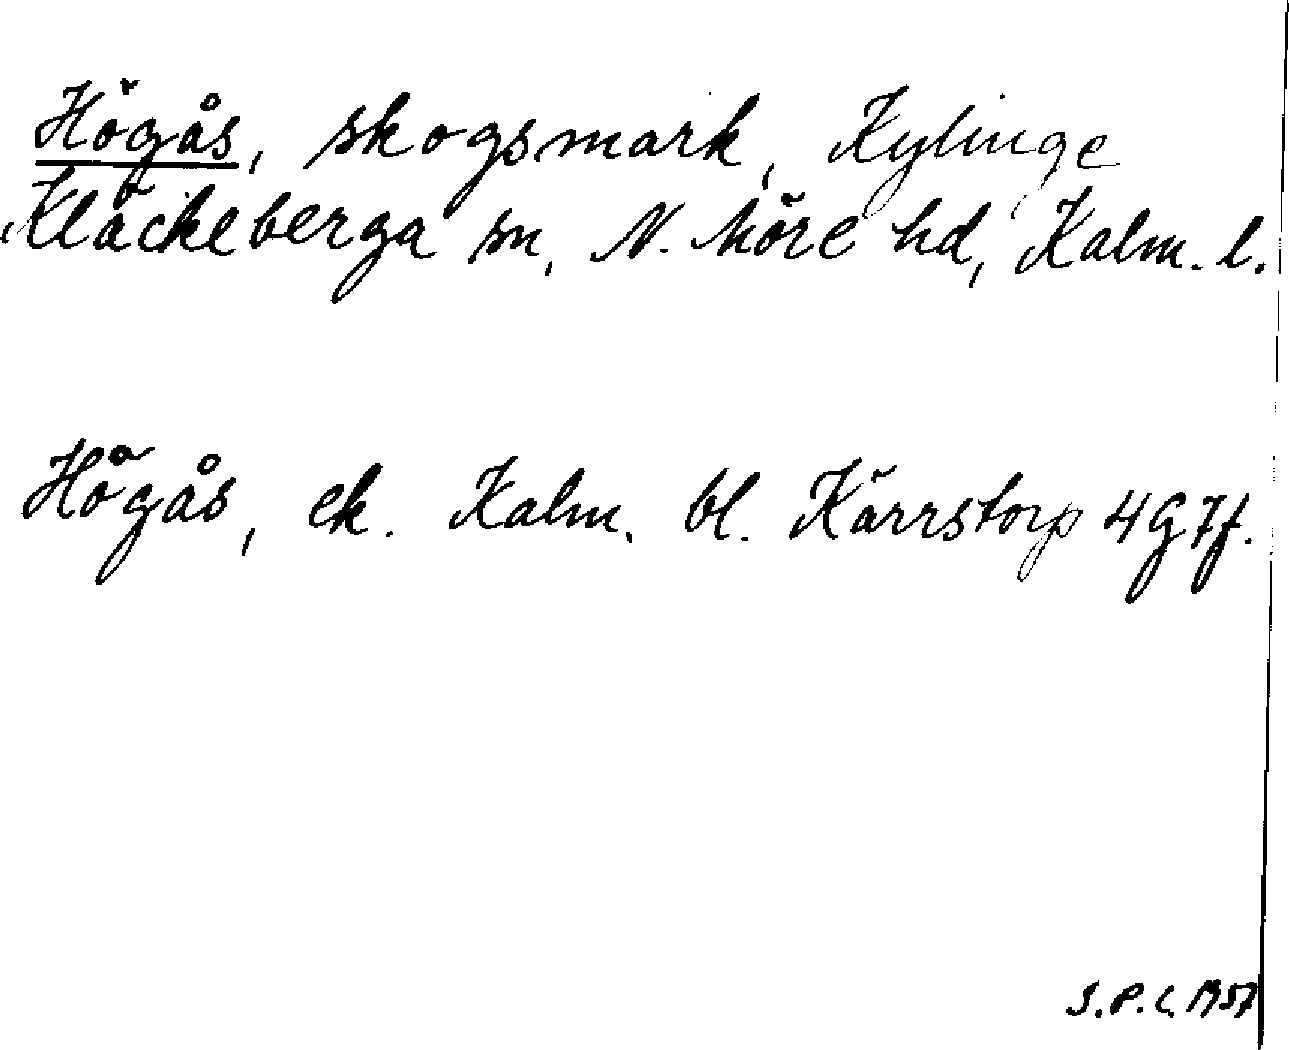 Högås, skogsmark, Kylinge
Kläckeberga sn, N. Möre hd, Kalm. l.
Högås, ek. Kalm. bl. Kärrstorp 4G7f.
S.P.C. 1957